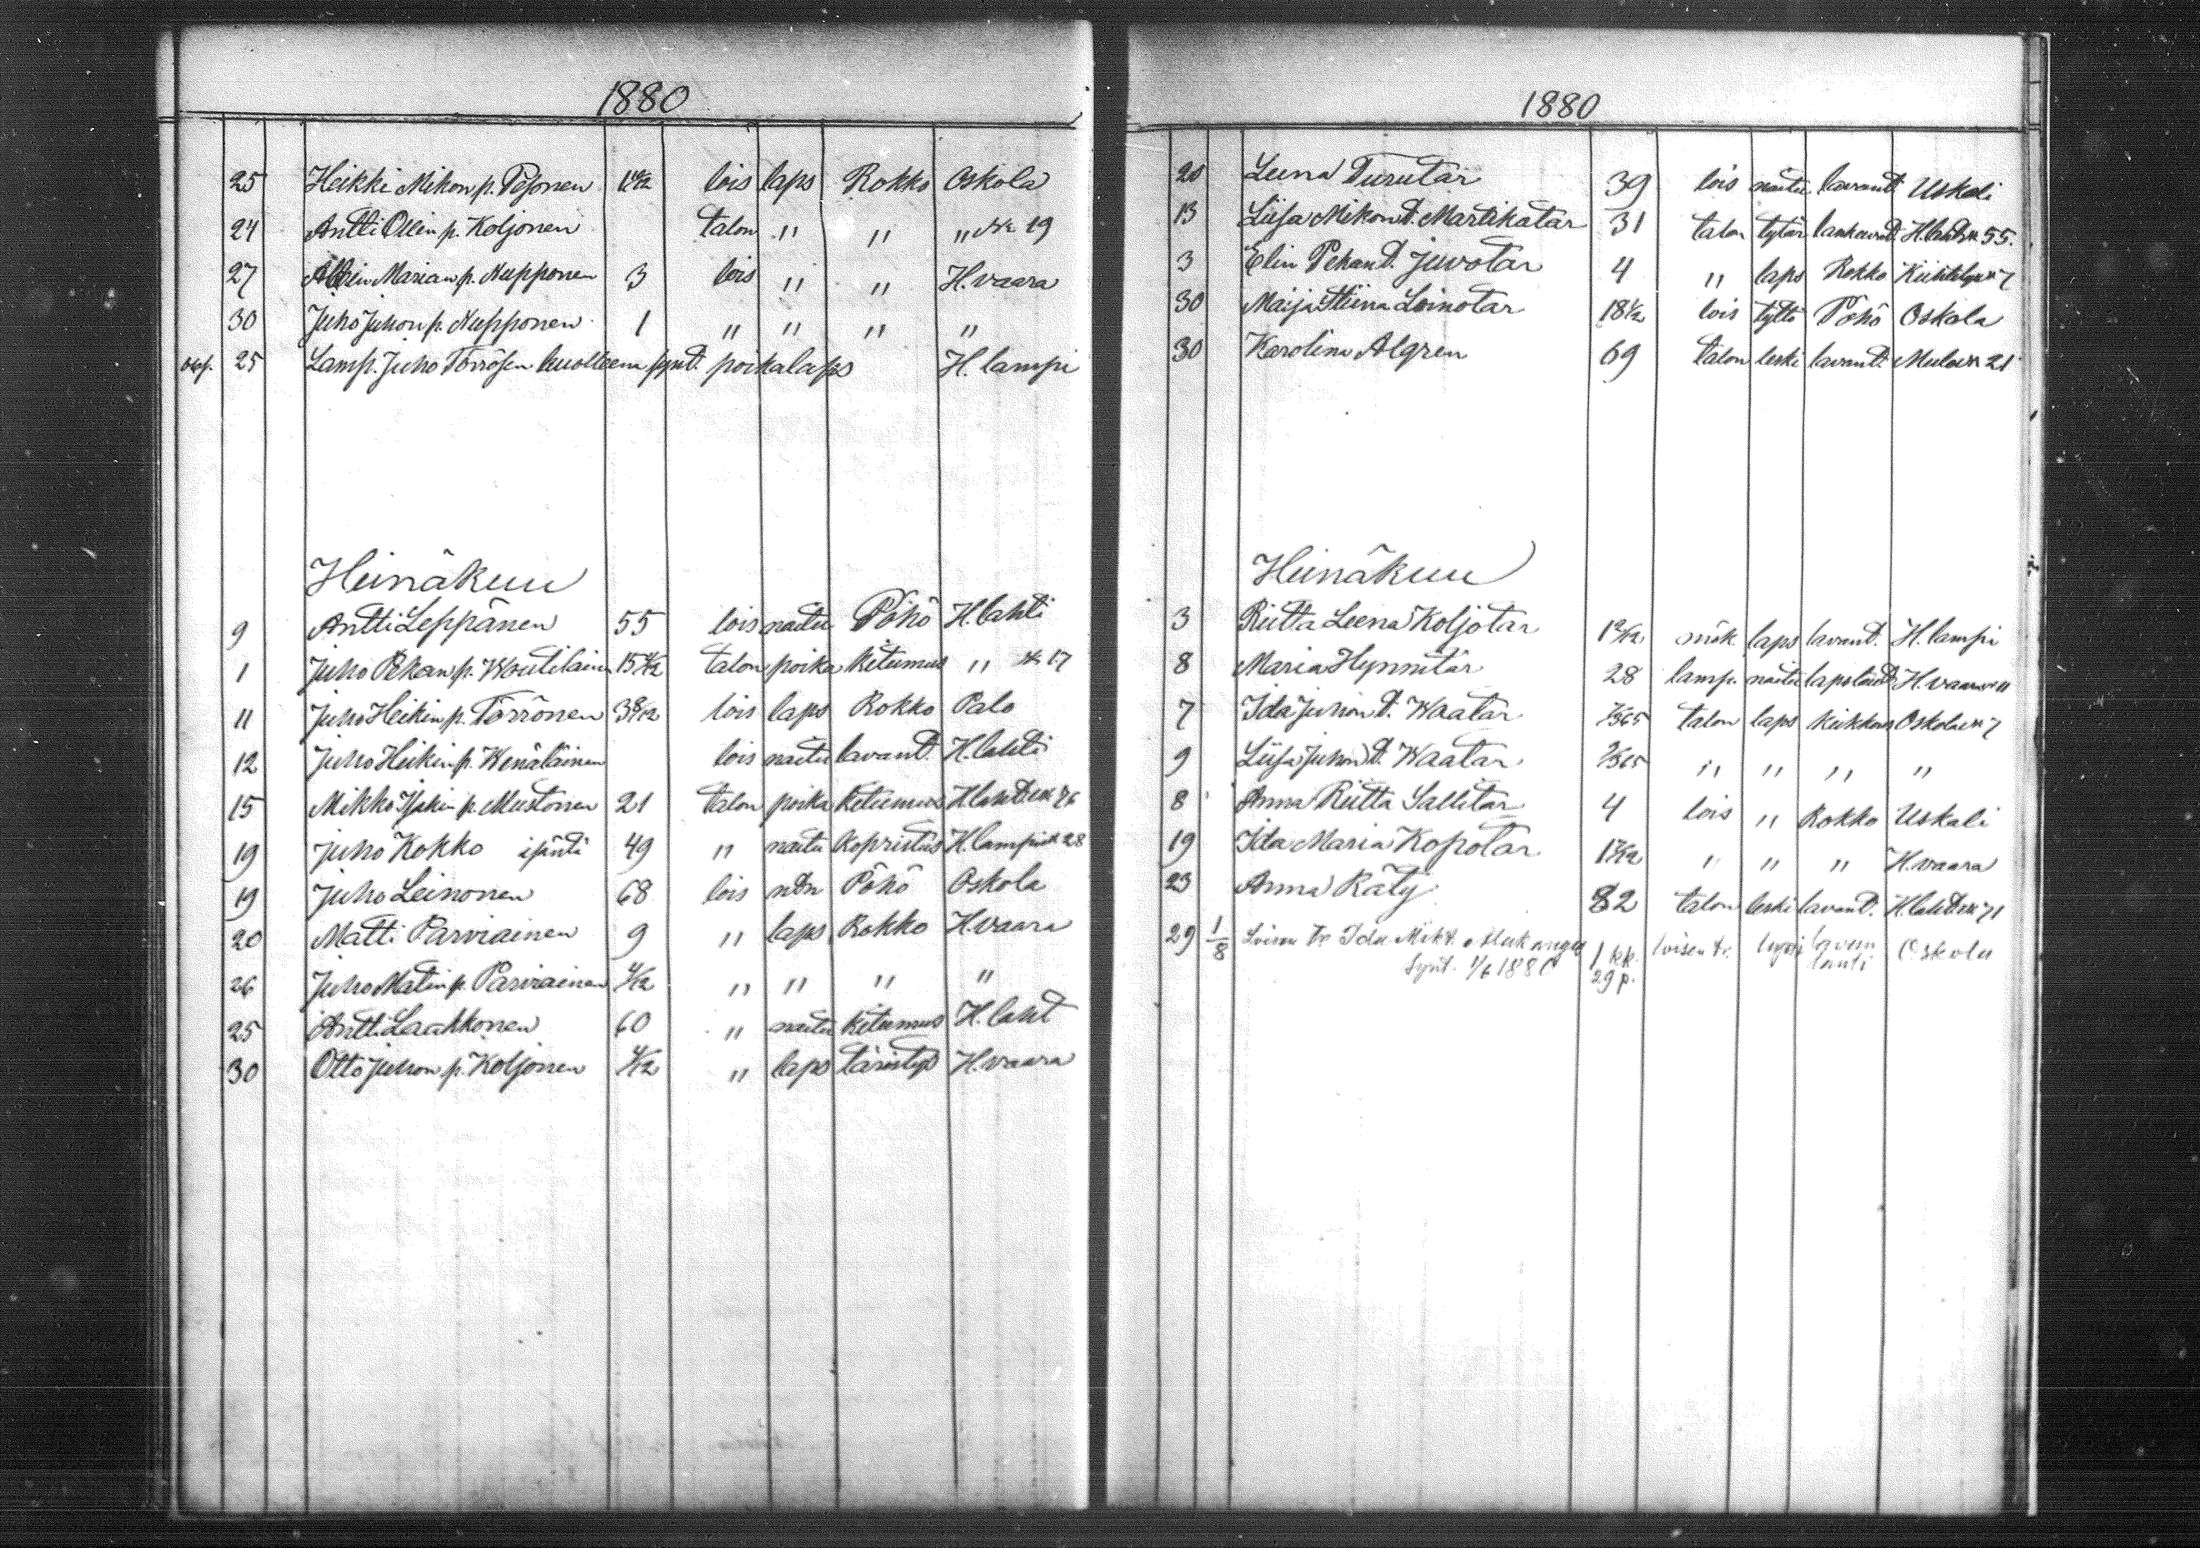 1880
25 Heikki Mikon p. Pesonen lois laps Rokko Oskola
24 Antti Ollin p. Koljonen talon " " " № 19
27 Albin Marian p. Nupponen 3 lois " " H.vaara
30 Juho Juhon p. Nupponen 1 " " " "
25 Lamp. Juho Törrösen kuolleena synt. poikalaps H.lampi
Heinäkuu
9 Antti Leppänen 55 lois naitu Pöhö H.lahti
1 Juho Pekan p. Woutilainen 15 talon poika Kitumus " № 17
11 Juho Heikin p. Törrönen 3 8/12 lois laps Rokko Palo
12 Juho Heikin p. Wenäläinen lois naitu lavant. H.lahti
15 Mikko Isakin p. Mustonen 21 talon poika Kitumus H.lahti № 76
19 Juho Kokko isäntä 49 " naitu Kopristus H.lampi № 28
19 Juho Leinonen 68 lois n:dn Pöhö Oskola
20 Matti Parviainen 9 " laps Rokko H.vaara
26 Juho Matin p. Parviainen " " " "
25 Antti Laukkonen 60 " naitu Kitumus H.laht
30 Otto Juhon p. Koljonen " laps täristys H.vaara
1880
20 Leena Turutar 39 lois naitu lavant. Uskali
13 Liisa Mikon t. Martikatar 31 talon tytär H.laht № 55.
3 Elin Pekan t. Juvotar 4 " laps Rokko № 7
30 Maija Stiina Leinotar 18 1/2 lois tyttö Pöhö Oskola
30 Karolina Algren 69 talon leski lavant. Mulo № 21
Heinäkuu
3 Riitta Leena Koljotar mök laps lavant. H.lampi
8 Maria Hynnitär 28 lamp. naitu H.vaara № 11
7 Ida Juhon t. Waatar 7/365 talon laps Kuikkas Oskola № 7
9 Liisa Juhon t. Waatar 9/365 " " " "
8 Anna Riitta Sallitar 4 lois " Rokko Uskali
19 Ida Maria Kopotar " " " H.vaara
23 Anna Räty 82 talon leski lavant. H.laht № 71
29 1/8 Loisen tr Ida Mikt. 1 kk. loisen tr. lapsi Oskola
synt. 1/6 1880 29 p.